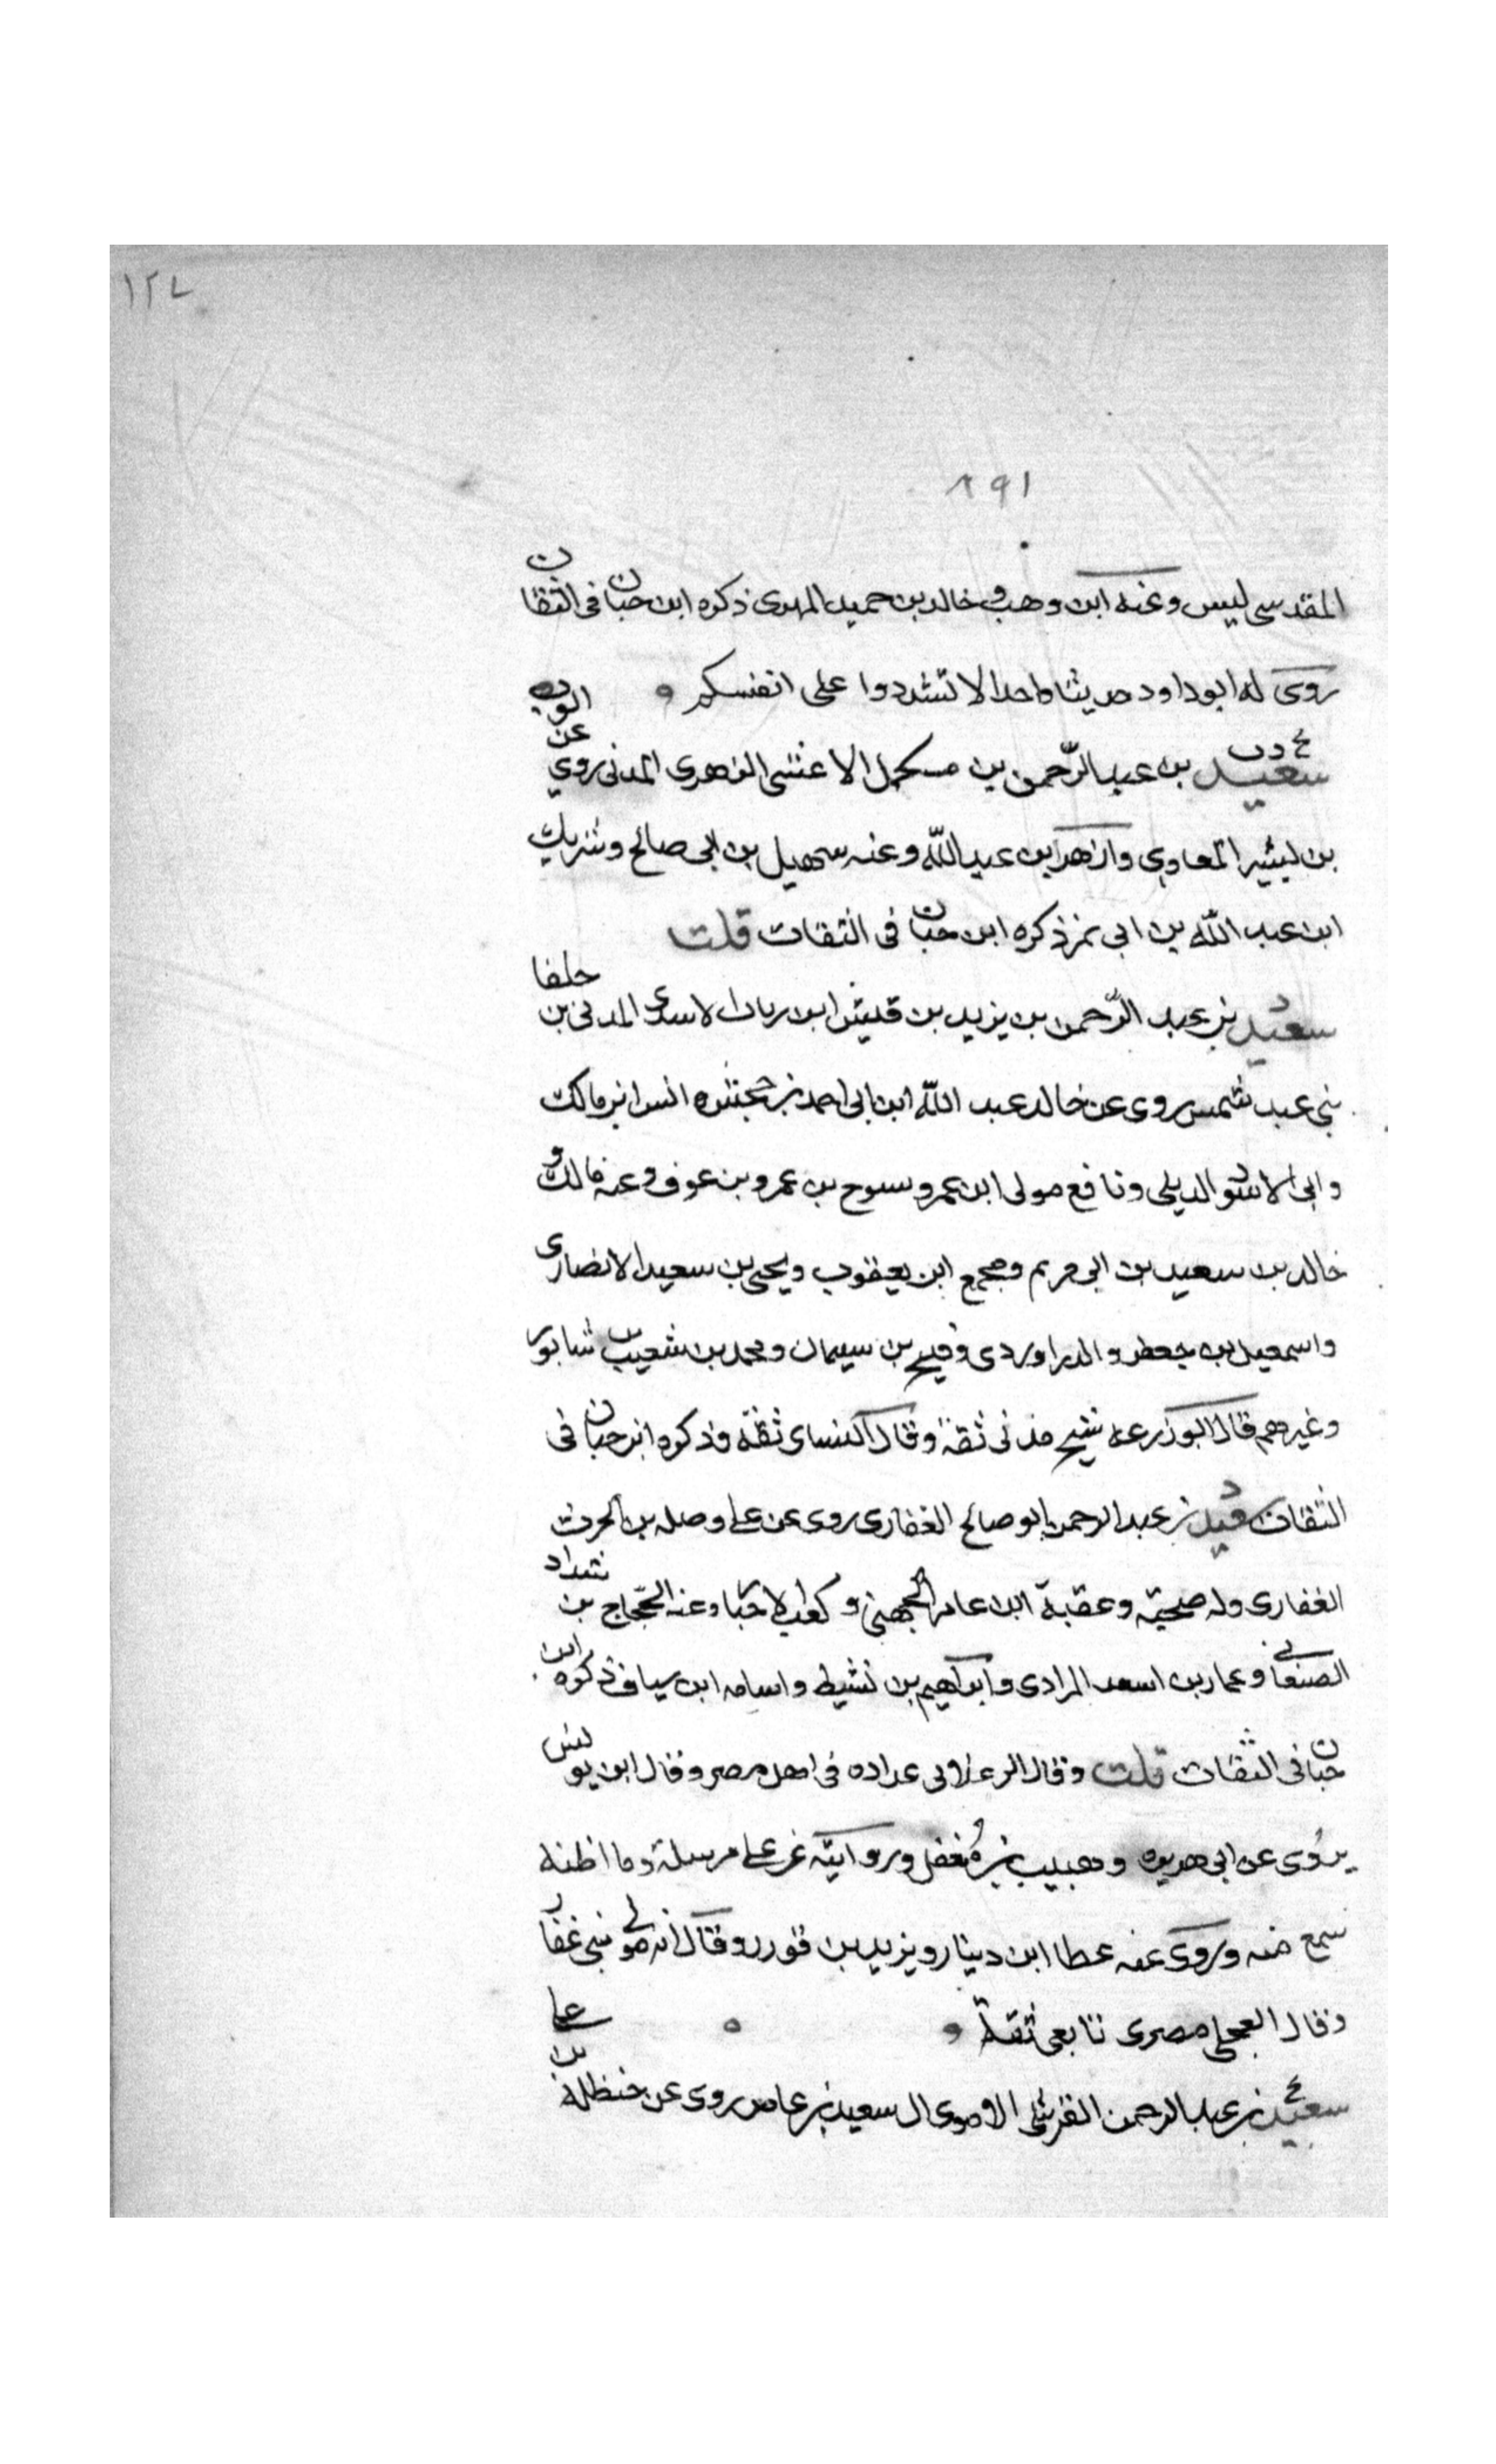 ١٢٧
٨٩١
المقدسى ليس وعنه ابن وهب و خالد بن حميد المهرى ذكره ابن حبان فى الثقات
روى له ابو داود حديثا واحدا لا تشددوا على انفسكم
سعيد بن عبد الرّحمن بن مكمل الاعشى الزهرى المدنى روى عن ايوب
بن بشير المعاوى وازهر ابن عبد اللّه وعنه سهيل بن ابى صالح وشريك
ابن عبد اللّه بن ابى نمر ذكره ابن حبان فى الثقات قلت
سعيد بن عبد الرّحمن بن يزيد بن قيش ابن رباب الاسدى المدنى بن حلفا
بنى عبد شمس روى عن خالد عبد اللّه ابن ابى احمد بن جحش وانس ابن مالك
وابى الاسود الديلى ونافع مولى ابن عمر وسوح بن عمرو بن عوف وعنه مالك و
خالد بن سعيد بن ابى مريم ومجمع ابن يعقوب ويحيى بن سعيد الانصارى
واسمعيل بن جعفر والدراوردى وفليح بن سيمان ومحمد بن شعيب بن شابور
وغيرهم قال ابو زرعه شيخ مدنى ثقة وقال النساى ثقة وذكره ابن حبان فى
الثقات سعيد بن عبد الرحمن ابو صالح الغفارى روى عن على وصله بن الحرث
الغفارى وله صحبته وعقبة ابن عامر الجهنى و كعب الاحبار وعنه الحجّاج بن شداد
الصنعانى وعمار بن اسعد المرادى وابراهيم بن نشيط واسامه ابن سياف ذكره ابن
حبان فى الثقات قلت وقال عداده فى اهل مصر وقال ابن يونس
يروى عن ابى هريره وهبيب بن مُغفل وروايته عن على مرسلة وما اظنه
سمع منه وروى عنه عطا ابن دينار ويزيد بن قورر وقال انه مولى بنى غفار
وقال العجلى مصرى تابعى ثقة
سعيد بن عبد الرحمن القرشى الاموى ال سعيد بن عاص روى عن حنظلة بن على